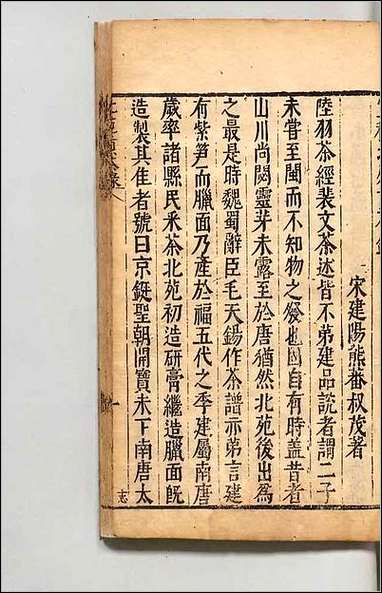 宋建陽熊蕃叔茂著
陸羽茶經裴文茶述皆不第建品說者謂二子
未嘗至閩而不知物之發也固自有時蓋昔者
山川尚閟靈芽未露至於唐猶然北苑後出爲
之最是時魏蜀辭臣毛天錫作茶譜亦第言建
有紫笋而臘面乃產於福五代之季建屬南唐
歲率諸縣民釆茶北苑初造研膏繼造臘面旣
造製其佳者號曰京鋌聖朝開寶末下南唐太
志